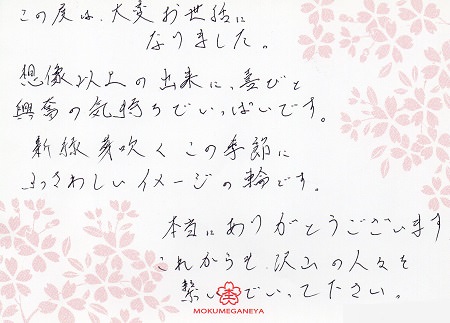 この度は、大変お世話に
なりました。
想像以上の出来に、喜びと
興奮の気持ちでいっぱいです。
新緑芽吹くこの季節に
ふさわしいイメージの輪です。
本当にありがとうございます
これからも、沢山の人々を
繋いでいって下さい。
MOKUMEGANEYA